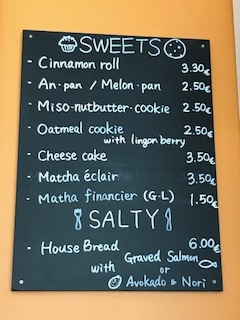 SWEETS
- Cinnamon roll 3.30€
- An・pan / Melon・pan 2.50€
- Miso・nutbutter・cookie 2.50€
- Oatmeal cookie 2.50€
with lingon berry
- Cheese cake 3.50€
- Matcha éclair 3.50€
- Matha financier (G・L) 1.50€
SALTY
- House Bread 6.00€
with Graved Salmon
or
Avokado & Nori